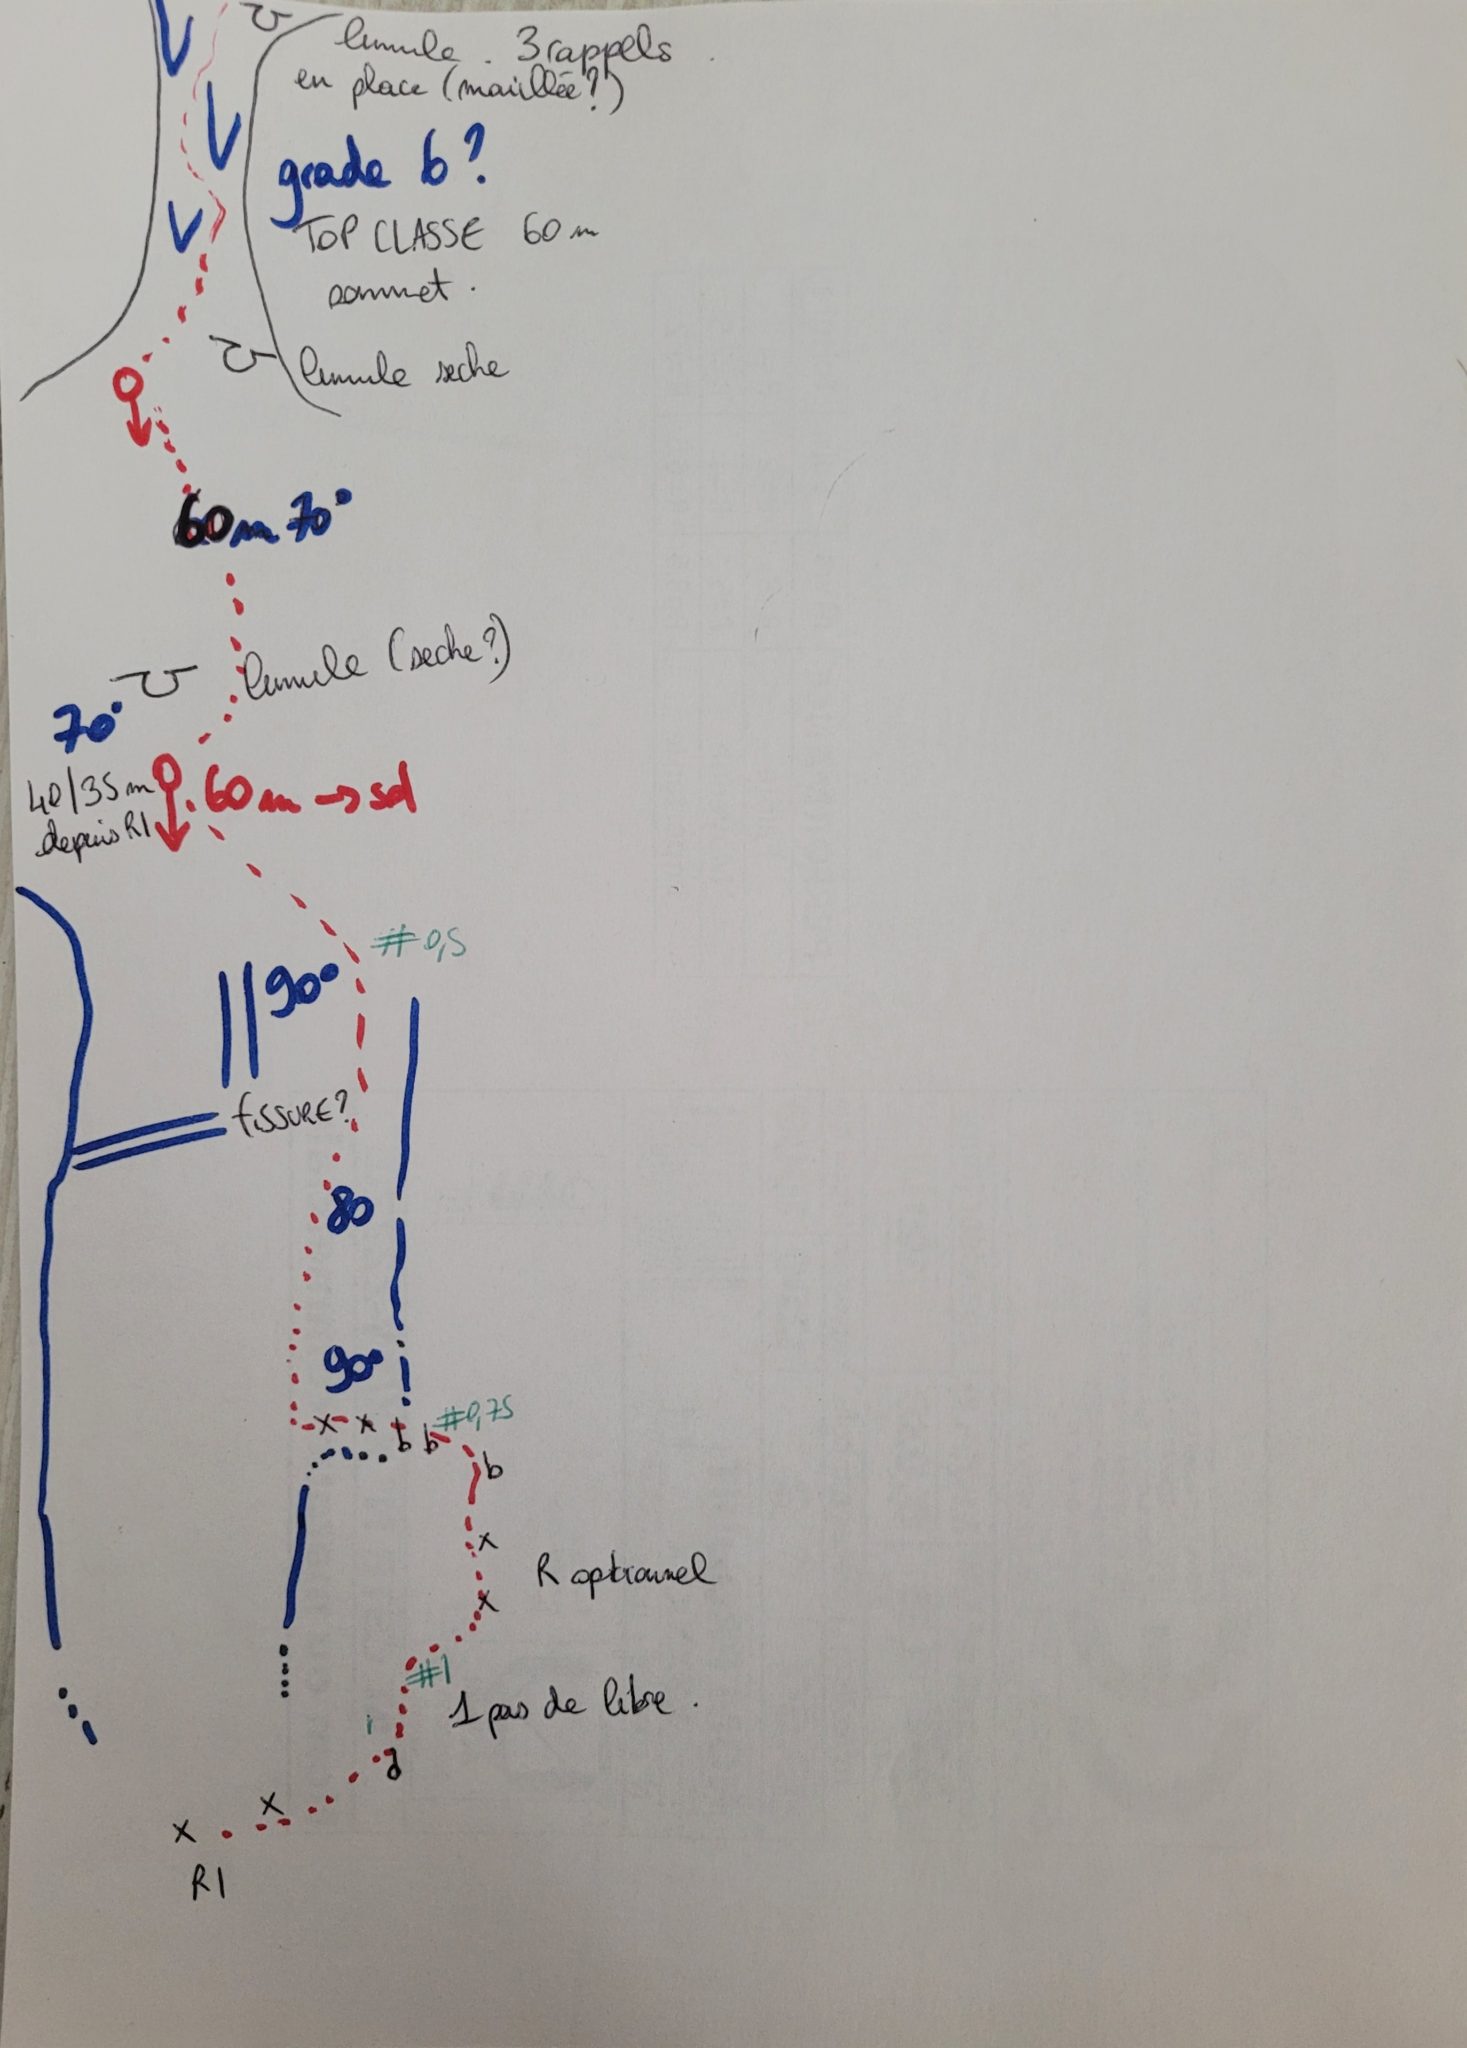 lunule. 3 rappels
en place (maillée?)
grade 6?
TOP CLASSE 60m
sommet.
lunule seche
60m 70°
lunule (seche?)
70°
40/35m
depuis R1
60m → sol
#0,5
90°
fissure?
80
90°
#0,75
x x b b
b
x
R optionnel
x
#1
1 pas de libre.
x x
R1